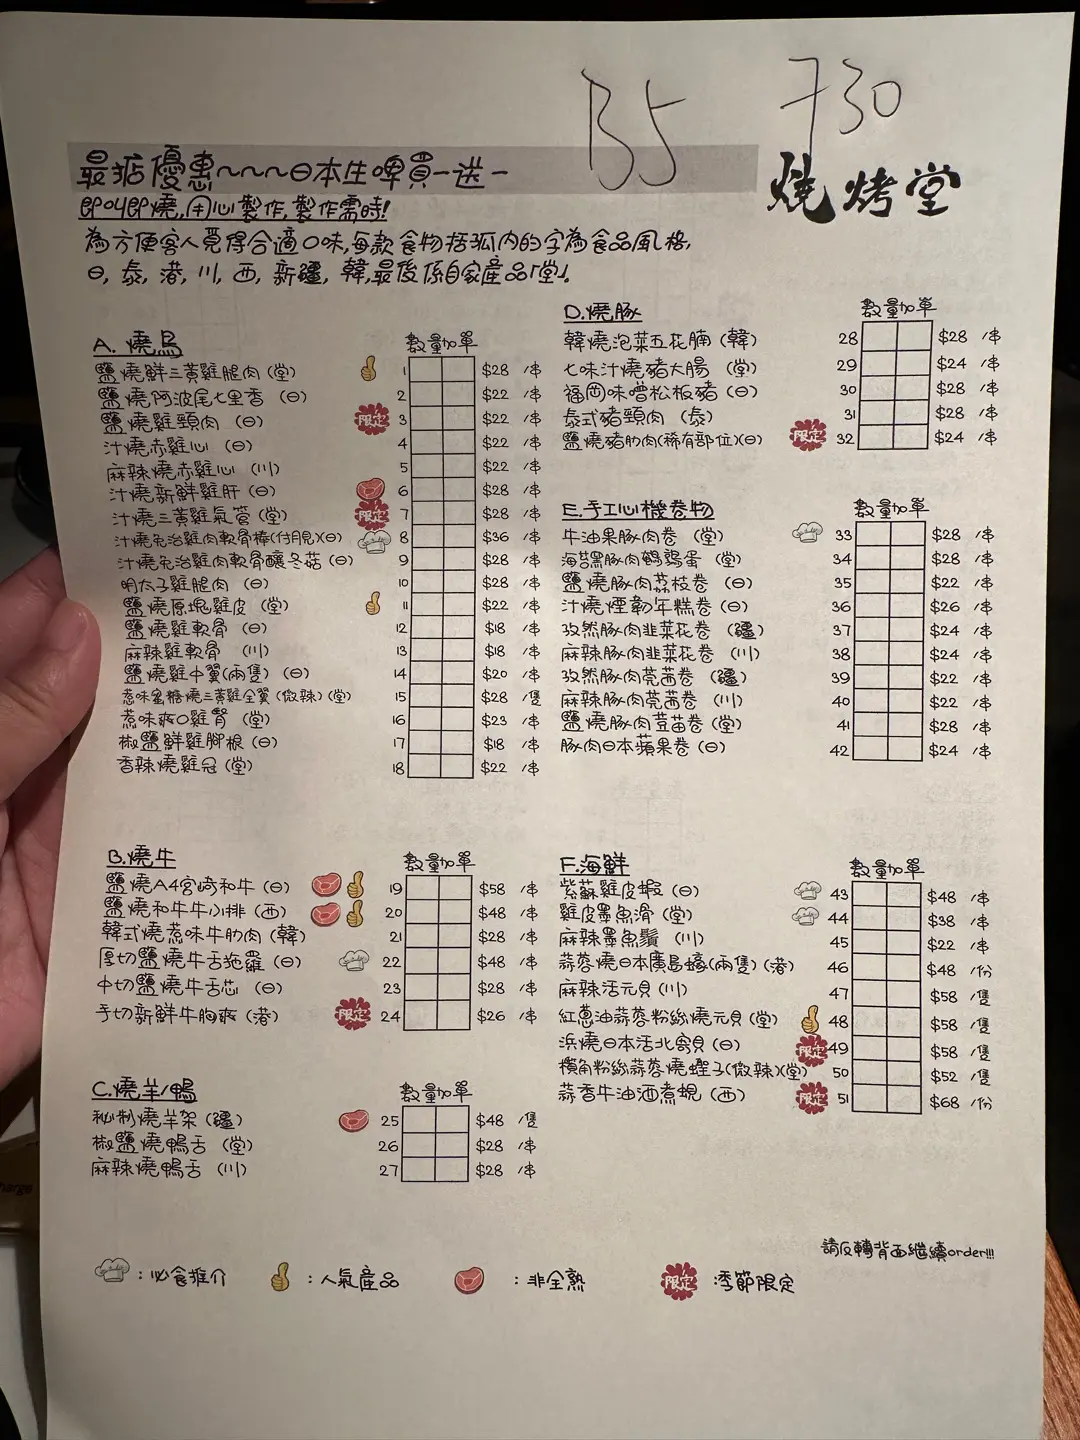 B5 730
燒烤堂
最抵優惠~~~日本生啤買一送一
即叫即燒,用心製作,製作需時!
為方便客人覓得合適口味,每款食物括弧內的字為食品風格,
日, 泰, 港, 川, 西, 新疆, 韓,最後係自家產品「堂」.
A. 燒鳥 數量 加單
鹽燒鮮三黃雞腿肉 (堂) 1 $28 /串
鹽燒阿波尾七里香 (日) 2 $22 /串
鹽燒雞頸肉 (日) 限定 3 $22 /串
汁燒赤雞心 (日) 4 $22 /串
麻辣燒赤雞心 (川) 5 $22 /串
汁燒新鮮雞肝 (日) 6 $28 /串
汁燒三黃雞氣管 (堂) 限定 7 $28 /串
汁燒免治雞肉軟骨棒(付月見)(日) 8 $36 /串
汁燒免治雞肉軟骨釀冬菇 (日) 9 $28 /串
明太子雞腿肉 (日) 10 $28 /串
鹽燒原塊雞皮 (堂) 11 $22 /串
鹽燒雞軟骨 (日) 12 $18 /串
麻辣雞軟骨 (川) 13 $18 /串
鹽燒雞中翼(兩隻) (日) 14 $20 /串
惹味蜜糖燒三黃雞全翼 (微辣) (堂) 15 $28 /隻
惹味爽口雞腎 (堂) 16 $23 /串
椒鹽鮮雞腳根 (日) 17 $18 /串
香辣燒雞冠 (堂) 18 $22 /串
B.燒牛 數量 加單
鹽燒A4宮崎和牛 (日) 19 $58 /串
鹽燒和牛牛小排 (西) 20 $48 /串
韓式燒惹味牛肋肉 (韓) 21 $28 /串
厚切鹽燒牛舌拖羅 (日) 22 $48 /串
中切鹽燒牛舌芯 (日) 23 $28 /串
手切新鮮牛胸爽 (港) 限定 24 $26 /串
C.燒羊/鴨 數量 加單
秘制燒羊架 (疆) 25 $48 /隻
椒鹽燒鴨舌 (堂) 26 $28 /串
麻辣燒鴨舌 (川) 27 $28 /串
D.燒豚 數量 加單
韓燒泡菜五花腩 (韓) 28 $28 /串
七味汁燒豬大腸 (堂) 29 $24 /串
福岡味噌松板豬 (日) 30 $28 /串
泰式豬頸肉 (泰) 31 $28 /串
鹽燒豬肋肉(稀有部位)(日) 限定 32 $24 /串
E.手工心機卷物 數量 加單
牛油果豚肉卷 (堂) 33 $28 /串
海苔黑豚肉鵪鶉蛋 (堂) 34 $28 /串
鹽燒豚肉荔枝卷 (日) 35 $22 /串
汁燒煙韌年糕卷 (日) 36 $26 /串
孜然豚肉韭菜花卷 (疆) 37 $24 /串
麻辣豚肉韭菜花卷 (川) 38 $24 /串
孜然豚肉芫茜卷 (疆) 39 $22 /串
麻辣豚肉芫茜卷 (川) 40 $22 /串
鹽燒豚肉荳苗卷 (堂) 41 $28 /串
豚肉日本蘋果卷 (日) 42 $24 /串
F.海鮮 數量 加單
紫蘇雞皮蝦 (日) 43 $48 /串
雞皮墨魚滑 (堂) 44 $38 /串
麻辣墨魚鬚 (川) 45 $22 /串
蒜蓉燒日本廣島蠔(兩隻) (港) 46 $48 /份
麻辣活元貝 (川) 47 $58 /隻
紅蔥油蒜蓉粉絲燒元貝 (堂) 48 $58 /隻
浜燒日本活北寄貝 (日) 限定 49 $58 /隻
欖角粉絲蒜蓉燒蟶子(微辣)(堂) 50 $52 /隻
蒜香牛油酒煮蜆 (西) 限定 51 $68 /份
請反轉背面繼續order!!!
:必食推介 :人氣產品 :非全熟 限定 :季節限定